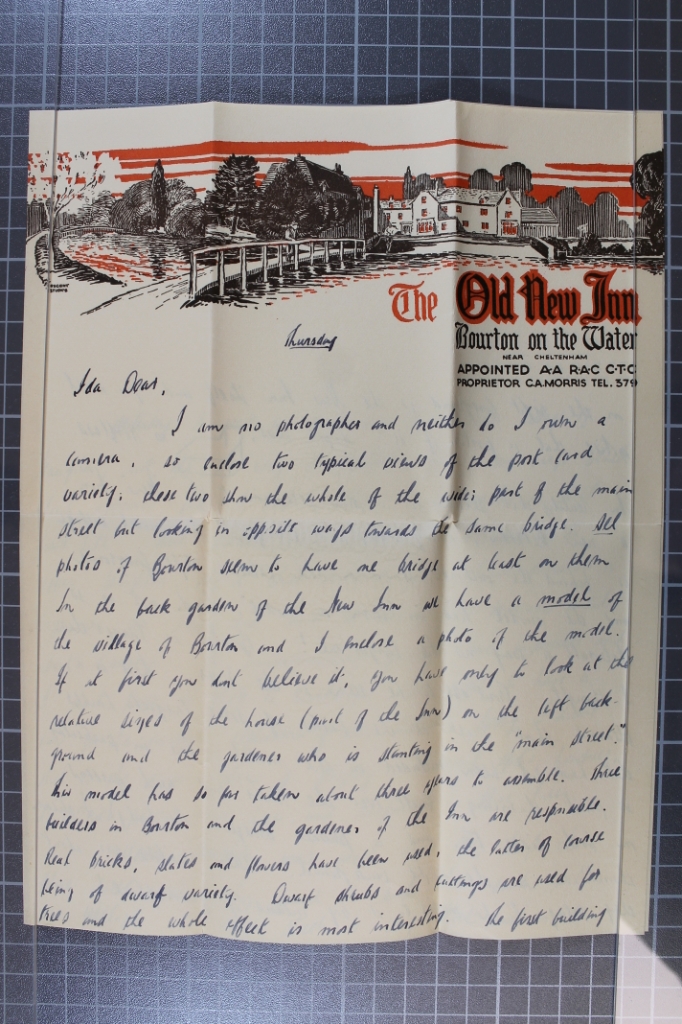 The Old New Inn
Bourton on the Water
NEAR CHELTENHAM
APPOINTED A·A R·A·C C·T·C
PROPRIETOR C.A.MORRIS TEL. 379
Thursday
Ida Dear,
I am no photographer and neither do I own a
camera, so enclose two typical views of the post card
variety; these two show the whole of the wide part of the main
street but looking in opposite ways towards the same bridge. All
photos of Bourton seem to have one bridge at least on them
In the back garden of the New Inn we have a model of
the village of Bourton and I enclose a photo of the model.
If at first you dont believe it, you have only to look at the
relative sizes of the house (part of the Inn) on the left back-
ground and the gardener who is standing in the "main street."
This model has so far taken about three years to assemble. Three
builders in Bourton and the gardener of the Inn are responsible.
Real bricks, slates and flowers have been used, the latter of course
being of dwarf variety. Dwarf shrubs and cuttings are used for
trees and the whole effect is most interesting. The first building